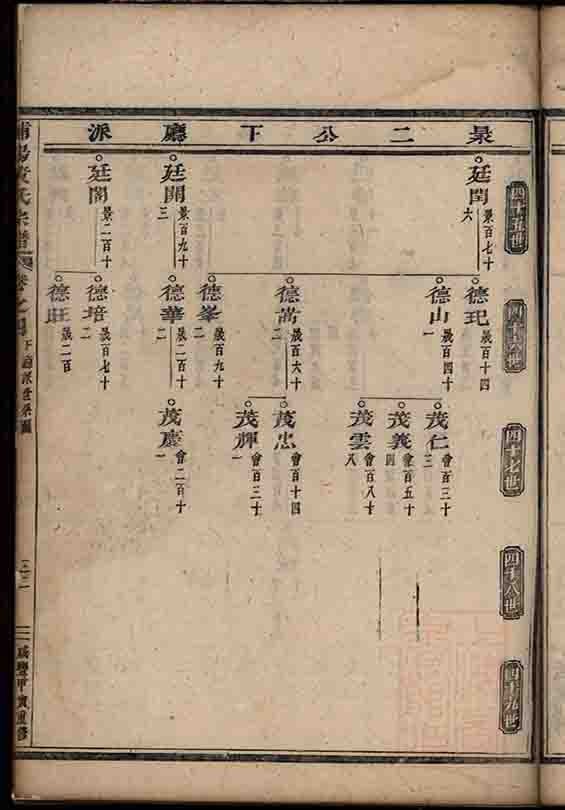 景二公下廳派
四十五世
四十六世
四十七世
四十八世
四十九世
廷閏 景百七十六
廷開 景百九十三
廷閣 景二百十
德玘 歲百十四
德山 歲百四十一
德嵩 歲百六十二
德峯 歲百九十
德華 歲二百十二
德培 歲百七十二
德旺 歲二百
茂仁 會百三十三
茂義 會百五十四
茂雲 會百八十八
茂忠 會百十四
茂輝 會百三十一
茂慶 會二百十一
氏宗譜
卷之四
下廳派世系圖
咸豐甲寅重修